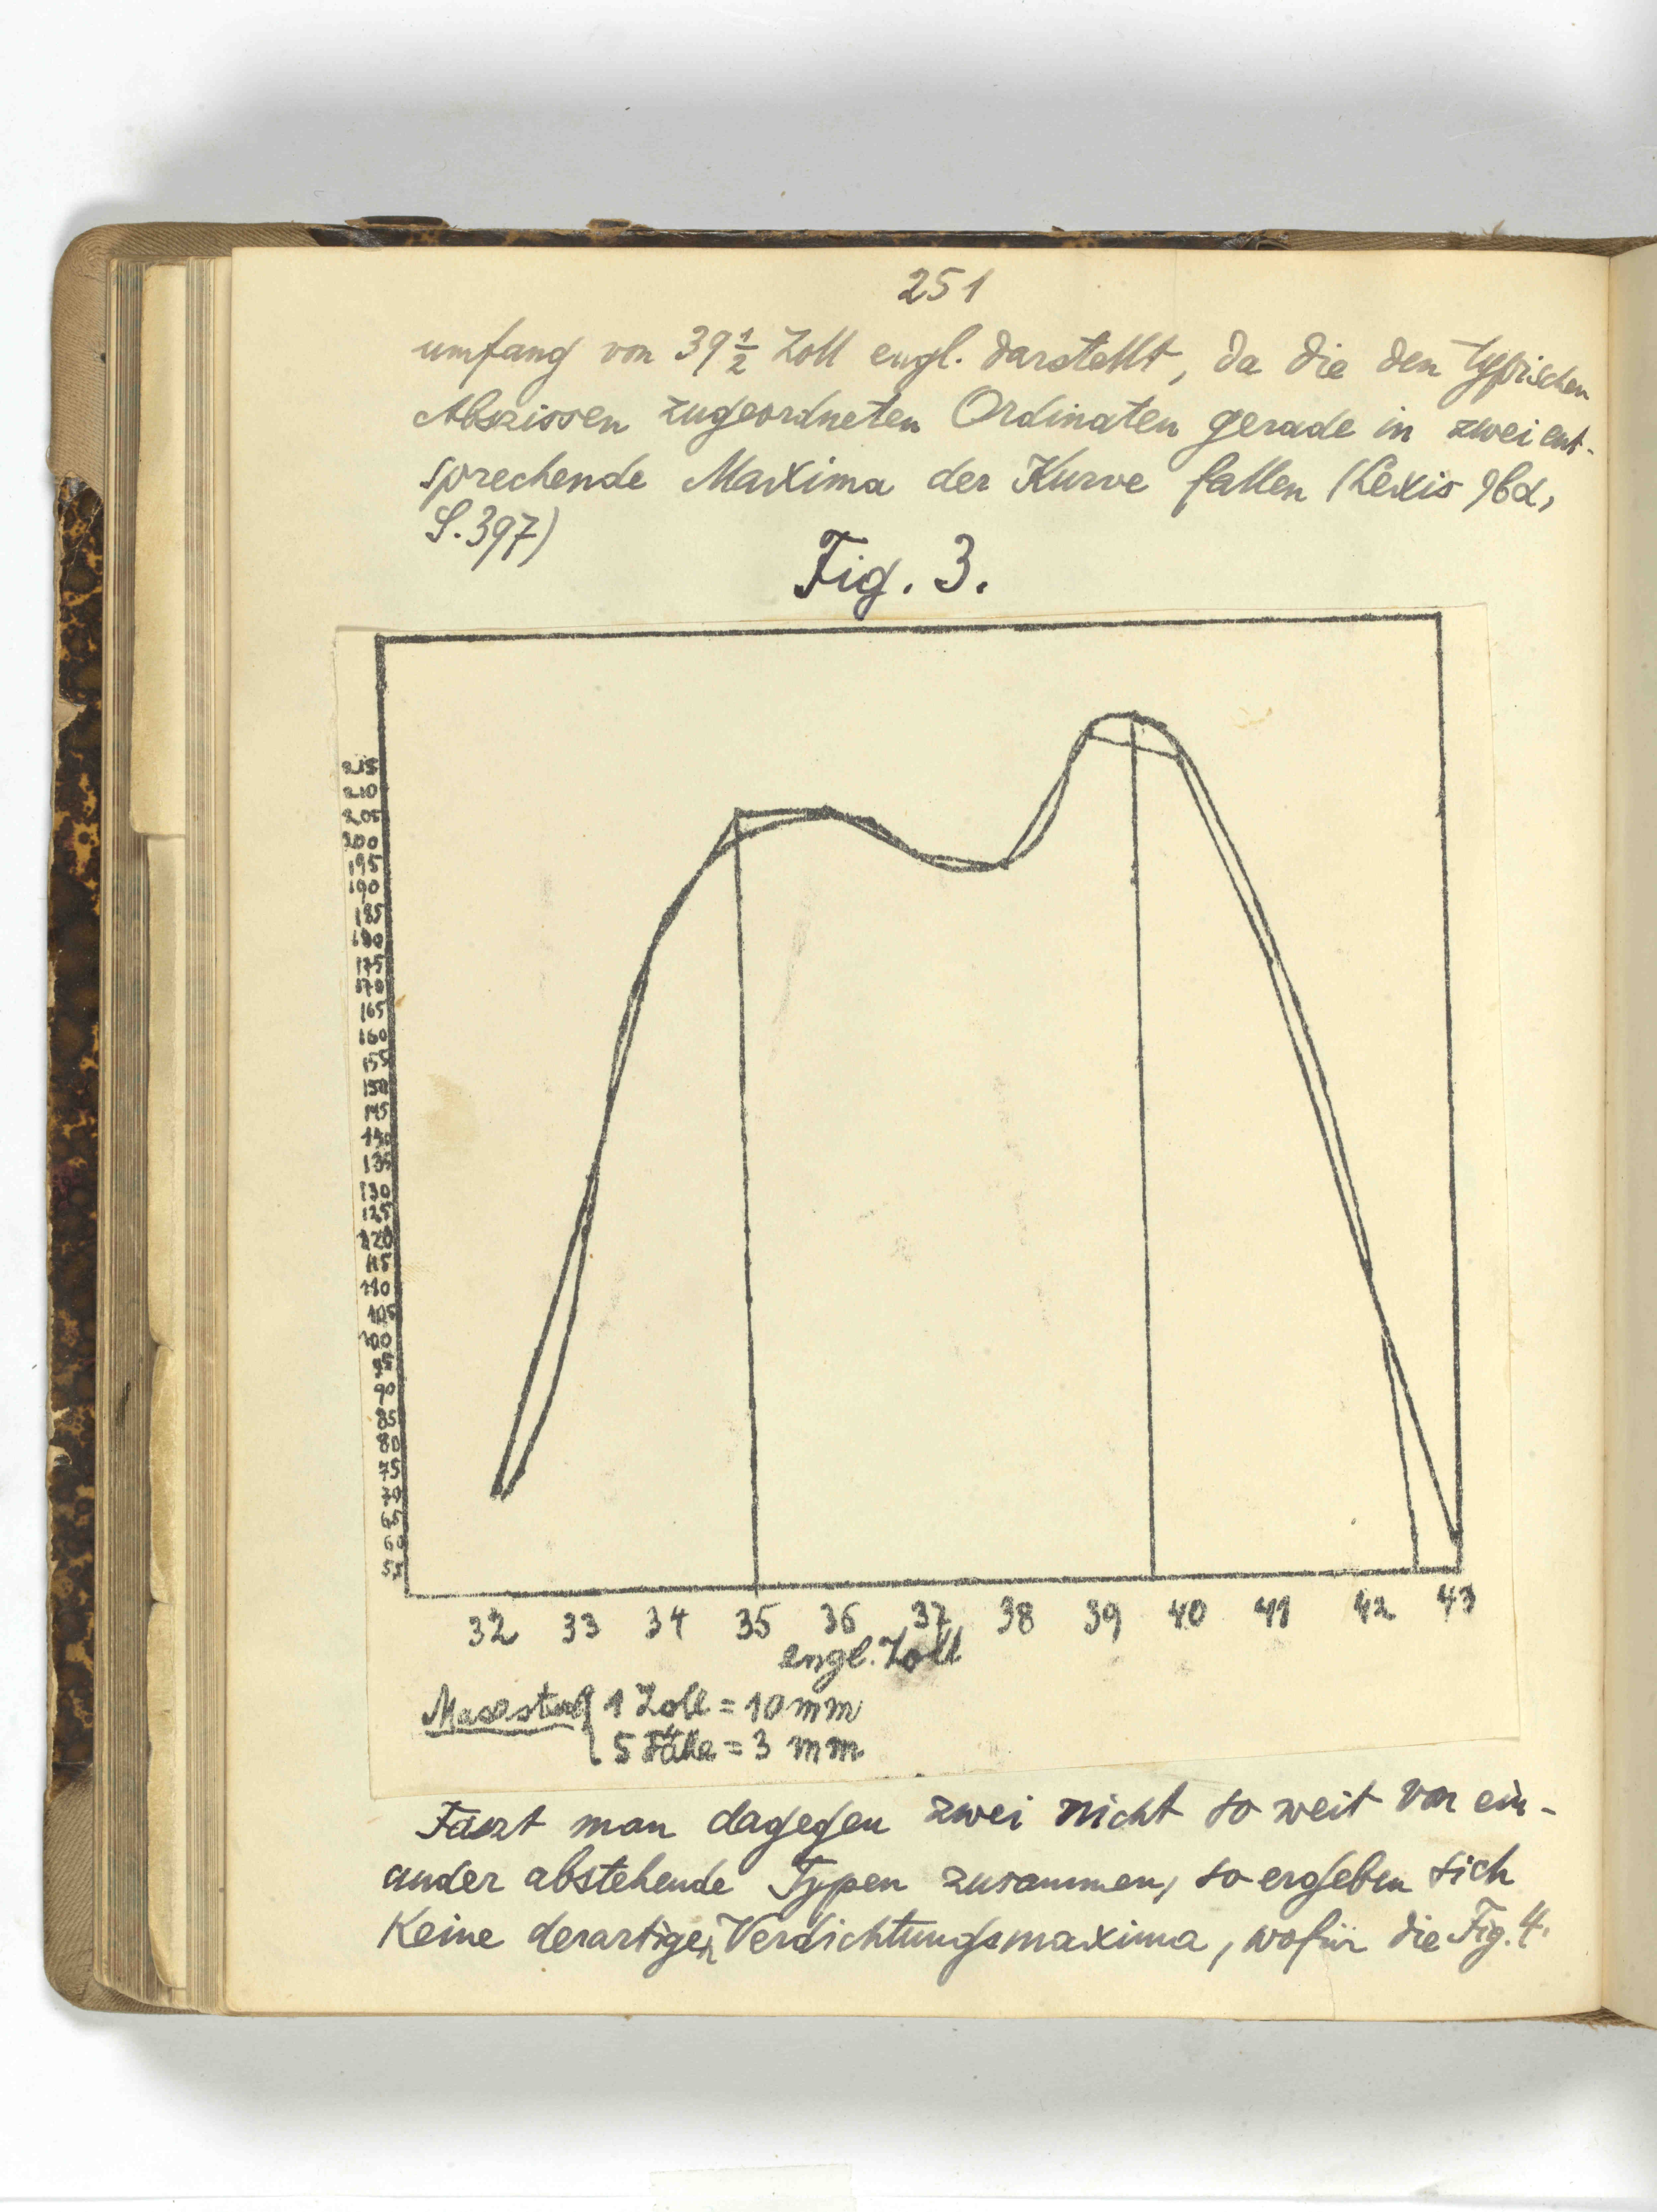 251
umfang von 39 1/2 Zoll engl. darstellt, da die den typischen
Abszissen zugeordneten Ordinaten gerade in zwei ent-
sprechende Maxima der Kurve fallen (Lexis Ibd,
S. 397)
Fig. 3.
215
210
205
200
195
190
185
180
175
170
165
160
155
150
145
140
135
130
125
120
115
110
105
100
95
90
85
80
75
70
65
60
32 33 34 35 36 37 38 39 40 41 42 43
engl. Zoll
1 Zoll = 10 mm
5 Fälle = 3 mm
Faszt man dagegen zwei nicht so weit von ein-
ander abstehende Typen zusammen, so ergeben sich
Keine derartigen Verdichtungsmaxima, wofür die Fig. 4.